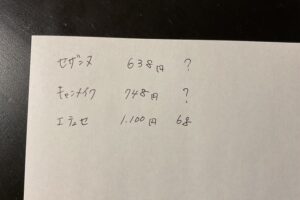 セザンヌ 638円 ?
キャンメイク 748円 ?
エテュセ 1.100円 6g